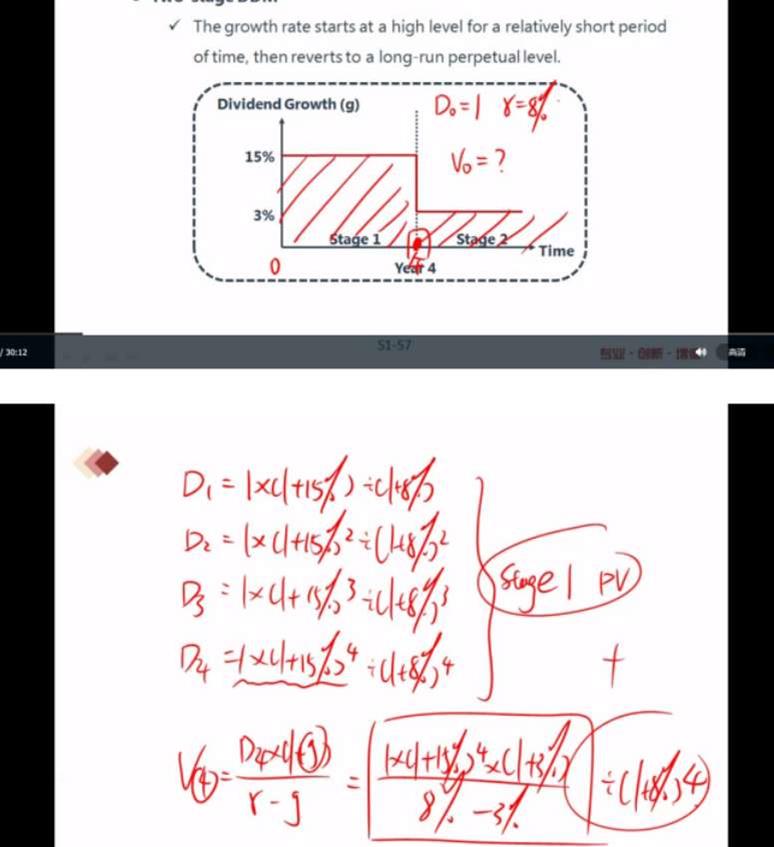 ✓ The growth rate starts at a high level for a relatively short period
of time, then reverts to a long-run perpetual level.
Dividend Growth (g)
D₀=1 r=8%
15%
V₀=?
3%
Stage 1
Stage 2
Time
0
Year 4
4
/ 30:12
S1-57
专业·创新·增值
高清
D₁ = 1×(1+15%)÷(1+8%)
D₂ = 1×(1+15%)²÷(1+8%)²
D₃ = 1×(1+15%)³÷(1+8%)³
Stage 1 PV
D₄ = 1×(1+15%)⁴÷(1+8%)⁴
+
V(4) = D₄×(1+g) / r-g = 1×(1+15%)⁴×(1+3%) / 8%-3% ÷(1+8%)⁴